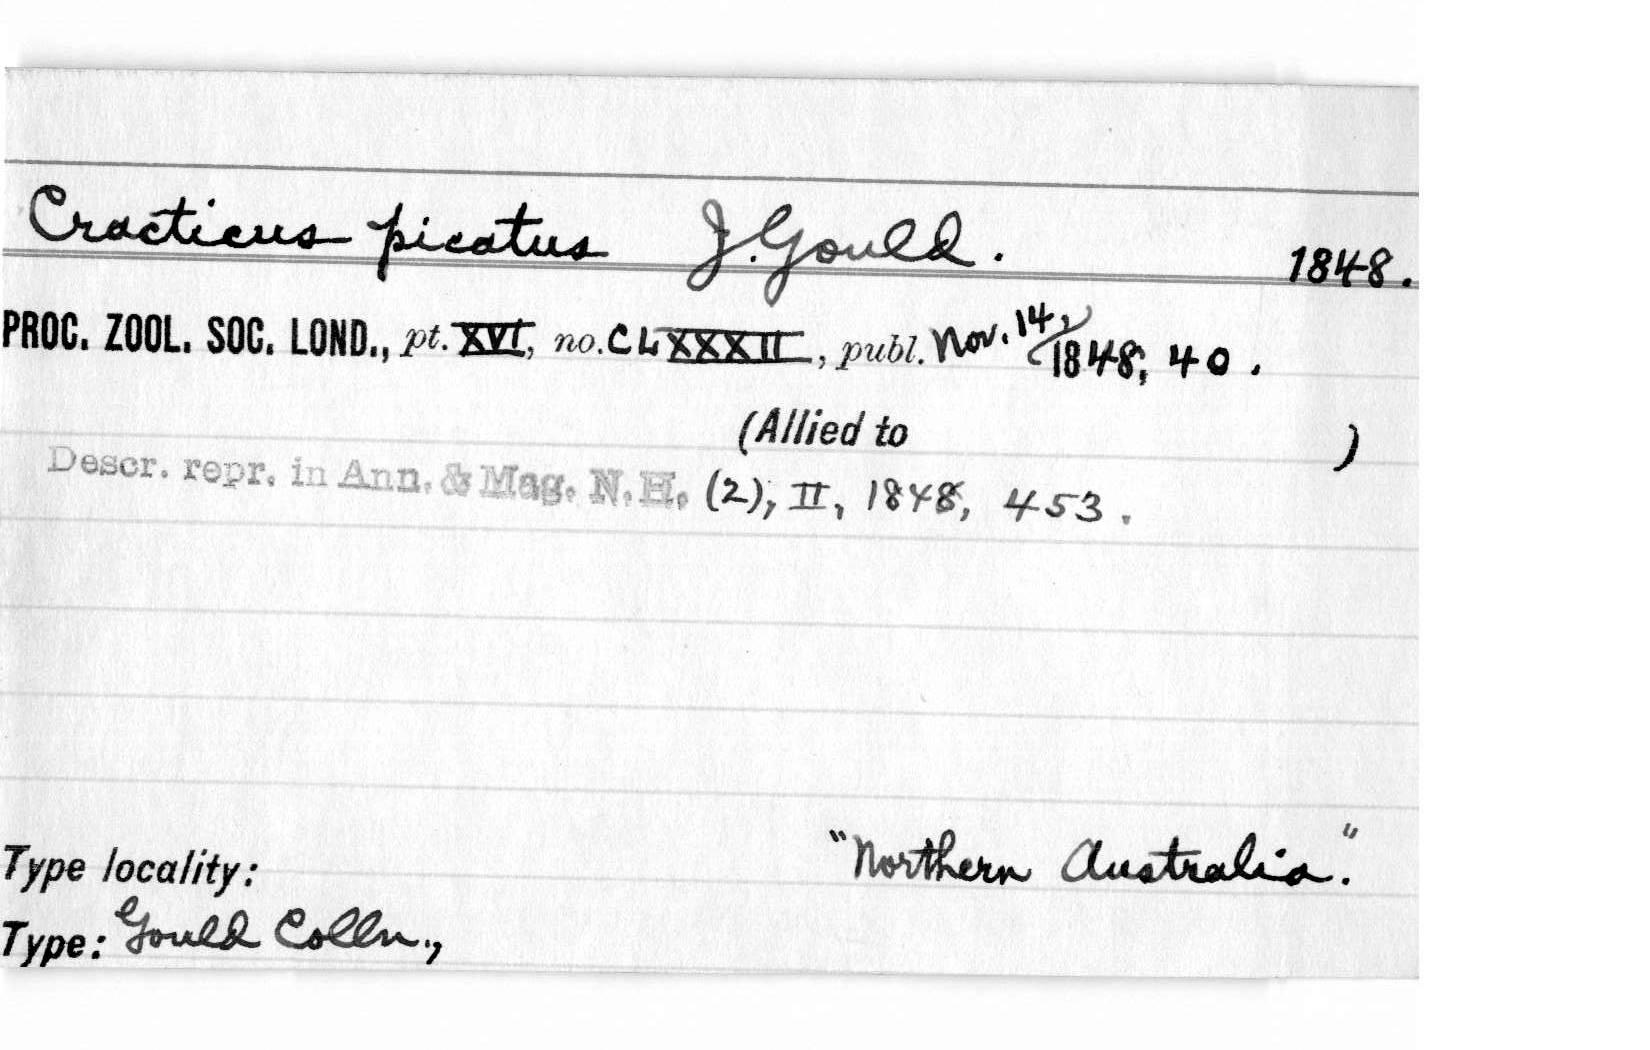 Cracticus picatus J. Gould. 1848.
PROC. ZOOL. SOC. LOND., pt. XVI, no. CLXXXII, publ. Nov. 14, 1848, 40.
(Allied to )
Descr. repr. in Ann. & Mag. N. H. (2), II, 1848, 453.
"Northern Australia."
Type locality:
Type: Gould Colln.,